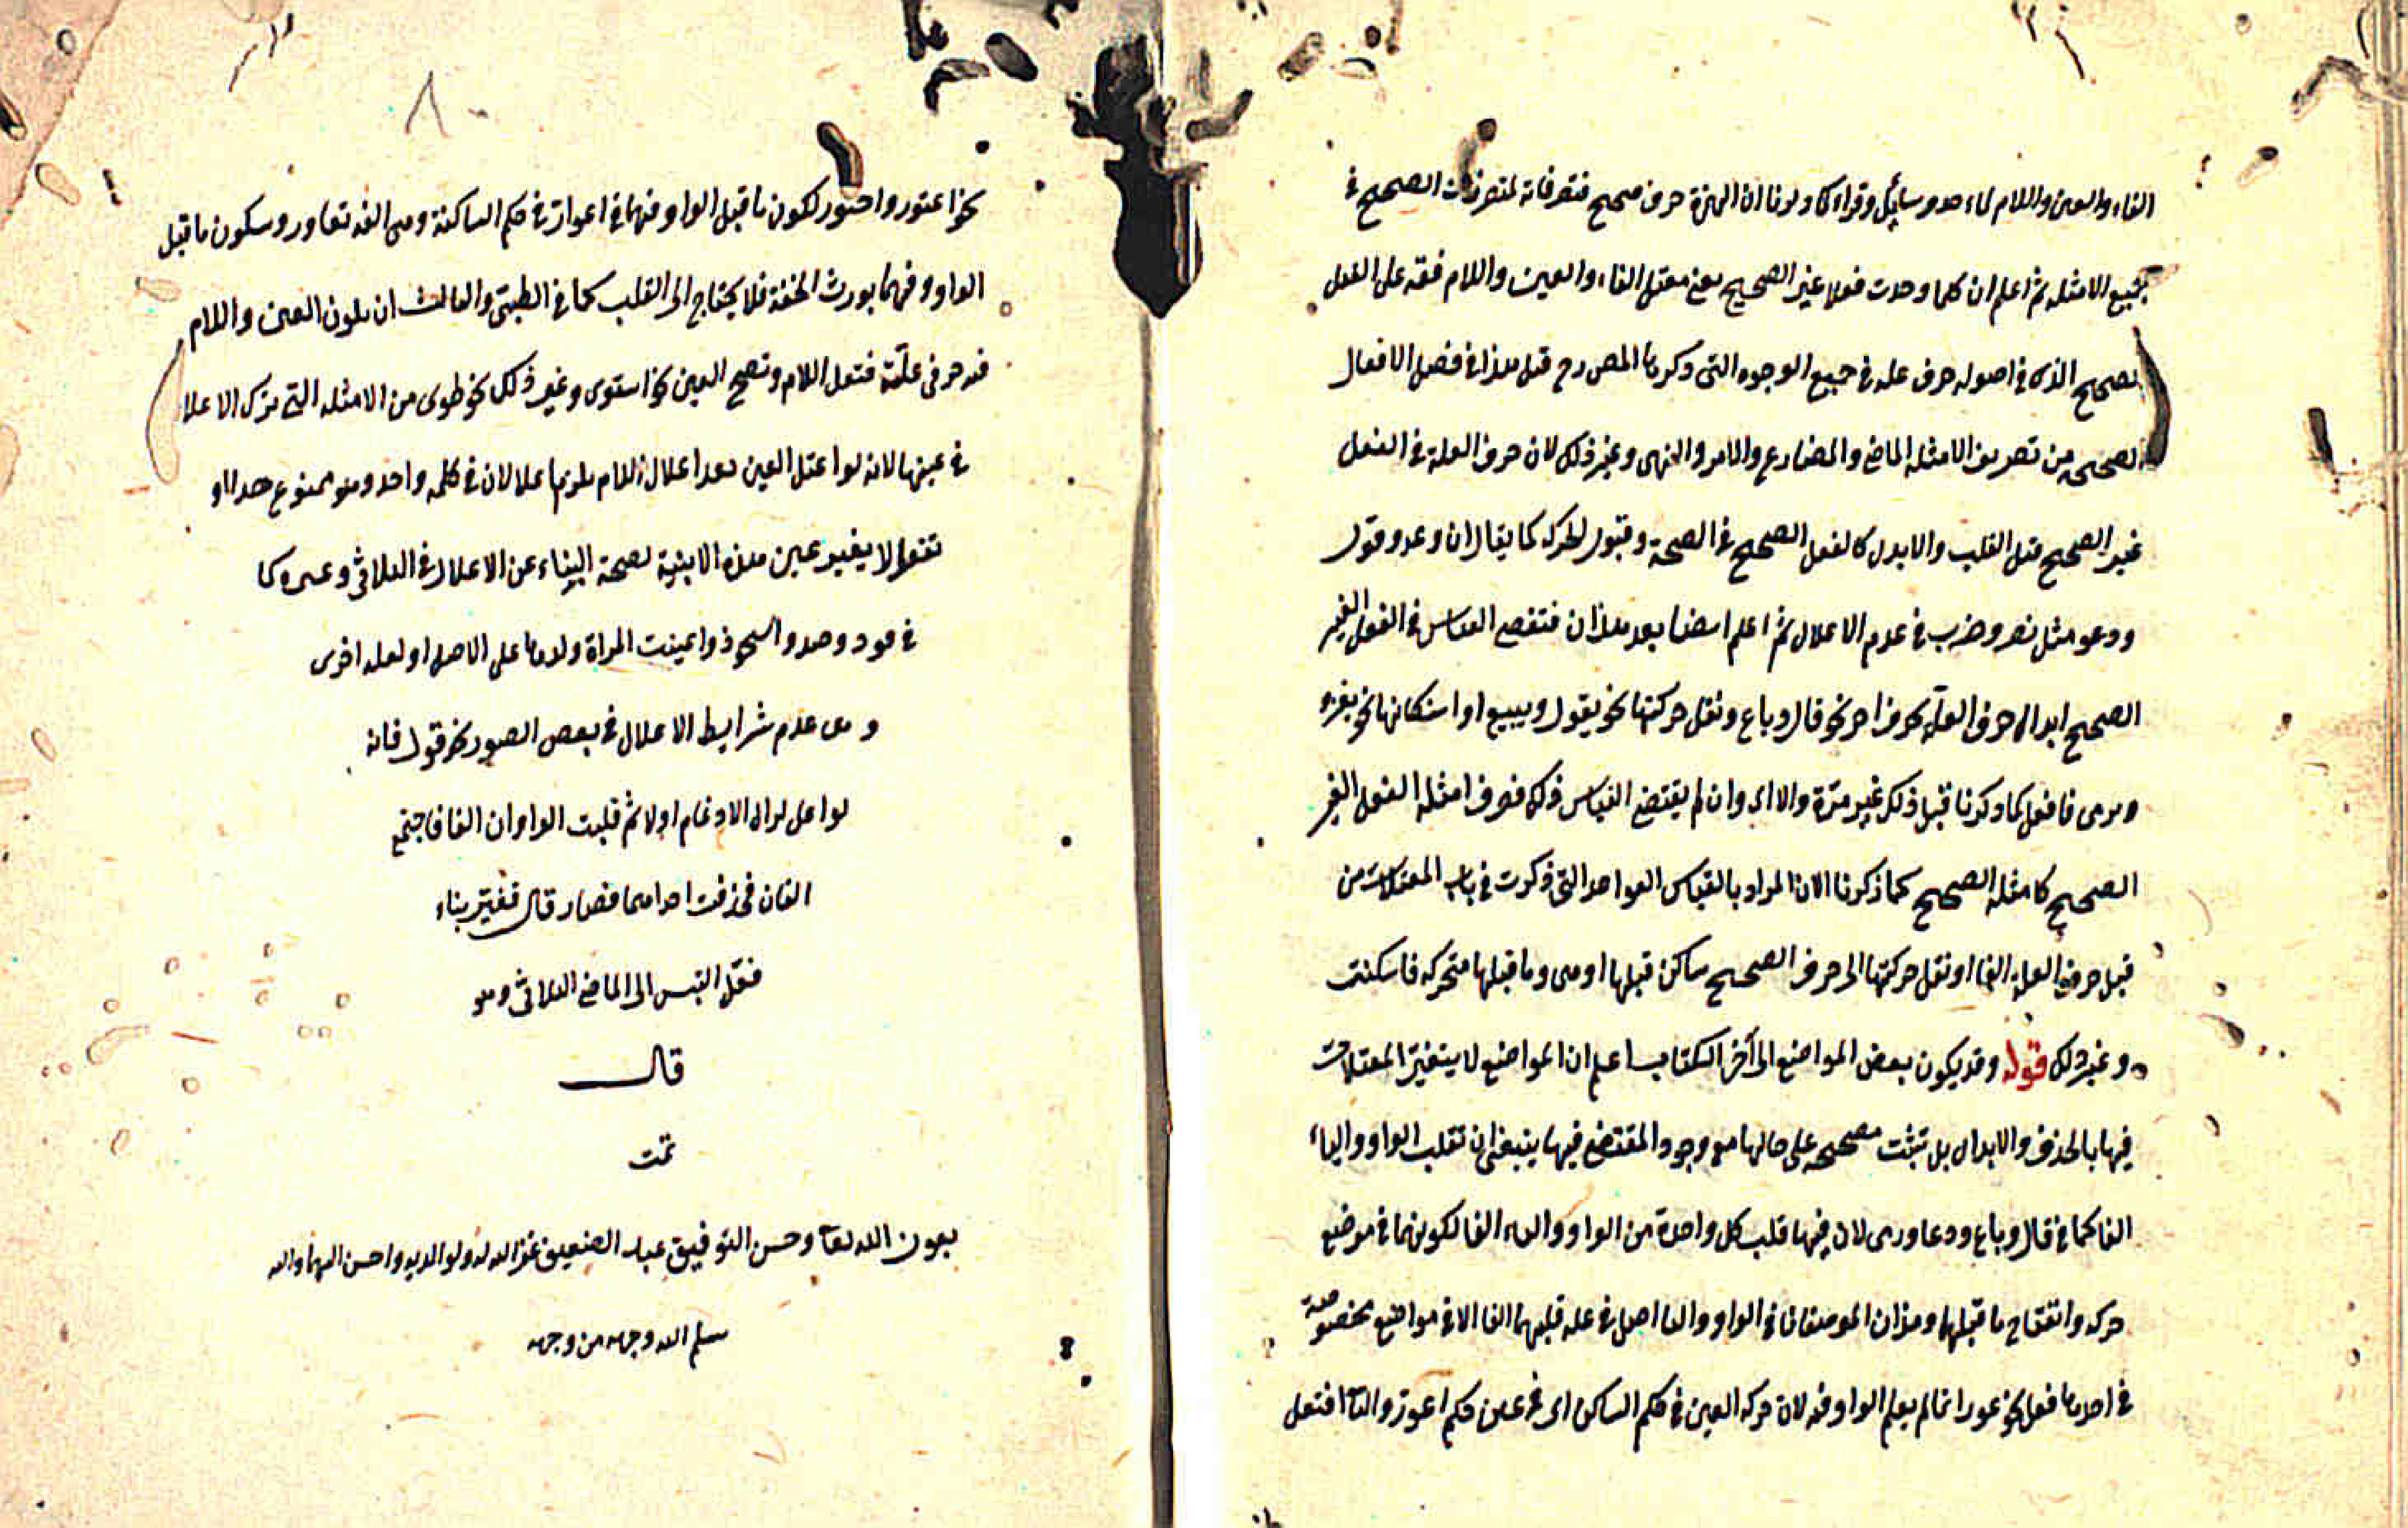 الفاء والعين واللام كماء وسائل وقراء كما ذكرنا ان الهمزة حرف صحيح فتصرفاته كتصرفات الصحيح في
جميع الامثله ثم اعلم ان كلما وجدت فعلا غير الصحيح يعنى معتل الفاء والعين واللام فقه على الفعل
الصحيح الذى في اصوله حرف عله في جميع الوجوه التى ذكرها المص رح قبل هذا في فصل الافعال
الصحيحه من تصريف الامثله الماضى والمضارع والامر والنهى وغير ذلك لان حرف العلة في الفعل
غير الصحيح قبل القلب والابدال كالفعل الصحيح في الصحة وقبول الحركه كما يقال ان وعد وقول
ودعو مثل نصر وضرب في عدم الاعلال ثم اعلم ايضا بعد هذا ان فتقضى القياس في الفعل الغير
الصحيح ابدال حرف العله بحرف اخر نحو قال وباع ونقل حركتها نحو يقول ويبيع او اسكانها نحو يغزو
ويرمى فافعل كما ذكرنا قبل ذلك غير مرة والا اى وان لم يقتضى القياس ذلك فصرف امثلة الفعل الغير
الصحيح كامثله الصحيح كما ذكرنا الان المراد بالقياس القواعد التى ذكرت في باب المعتلات من
قبل حرف العلة الفا او نقل حركتها الى حرف الصحيح ساكن قبلها او هى وما قبلها متحركه فاسكنت
وغير ذلك قوله وقد يكون بعض المواضع الى آخر الكتاب اعلم ان المواضع لا يتغير المعتلات
فيها بالحذف والابدال بل تثبت صحيحه على حالها مع وجود المقتضى فيها ينبغى ان تقلب الواو والياء
الفا كما في قال وباع ودعا ورمى لان فيها قلب كل واحدة من الواو والياء الفا لكونهما في موضع
حركه وانفتاح ما قبلها وهذان الموصفان في الواو والياء اصل في عله قلبهما الفا الا في مواضع مخصوصة
في احدها فعل نحو عور انما لم يعل الواو فيه لان حركه العين في حكم الساكن اى في عين حكم اعور والثانى افتعل
نحو اعتور واجتور لكون ما قبل الواو فيهما في اعوار في حكم الساكنة وهى الف تعاور وسكون ما قبل
الواو وفيهما يورث الخفة فلا يحتاج الى القلب كما في الطبتى والثالث ان يكون العين واللام
فيه حرفى علّة فتعل اللام وتصح العين نحو استوى وغير ذلك نحو طوى من الامثله التى ترك الاعلا
في عينها لانه لو اعتل العين بعد اعلال اللام يلزم اعلالان في كلمه واحد وهو ممنوع
لا يغير عين هذه الابنية لصحة البناء عن الاعلال في الثلاثى وغيره كما
في قود وصيد واستحوذ واغيلت المراة على الاصل او لعله اخرى
وهى عدم شرايط الاعلال في بعض الصور نحو قول فانه
لو اعل لزال الادغام اولا ثم قلبت الواو ان الفا فاجتمع
الفان فحذفت احداهما فصار قال فتغيّر بناء
فعّل التبس الى الماضى الثلاثى وهو
قال
تمت
بعون الله تعآ وحسن التوفيق عبد الضعيف غفر الله له ولوالديه واحسن اليهما واليه
سلم الله وجهه من وجهه